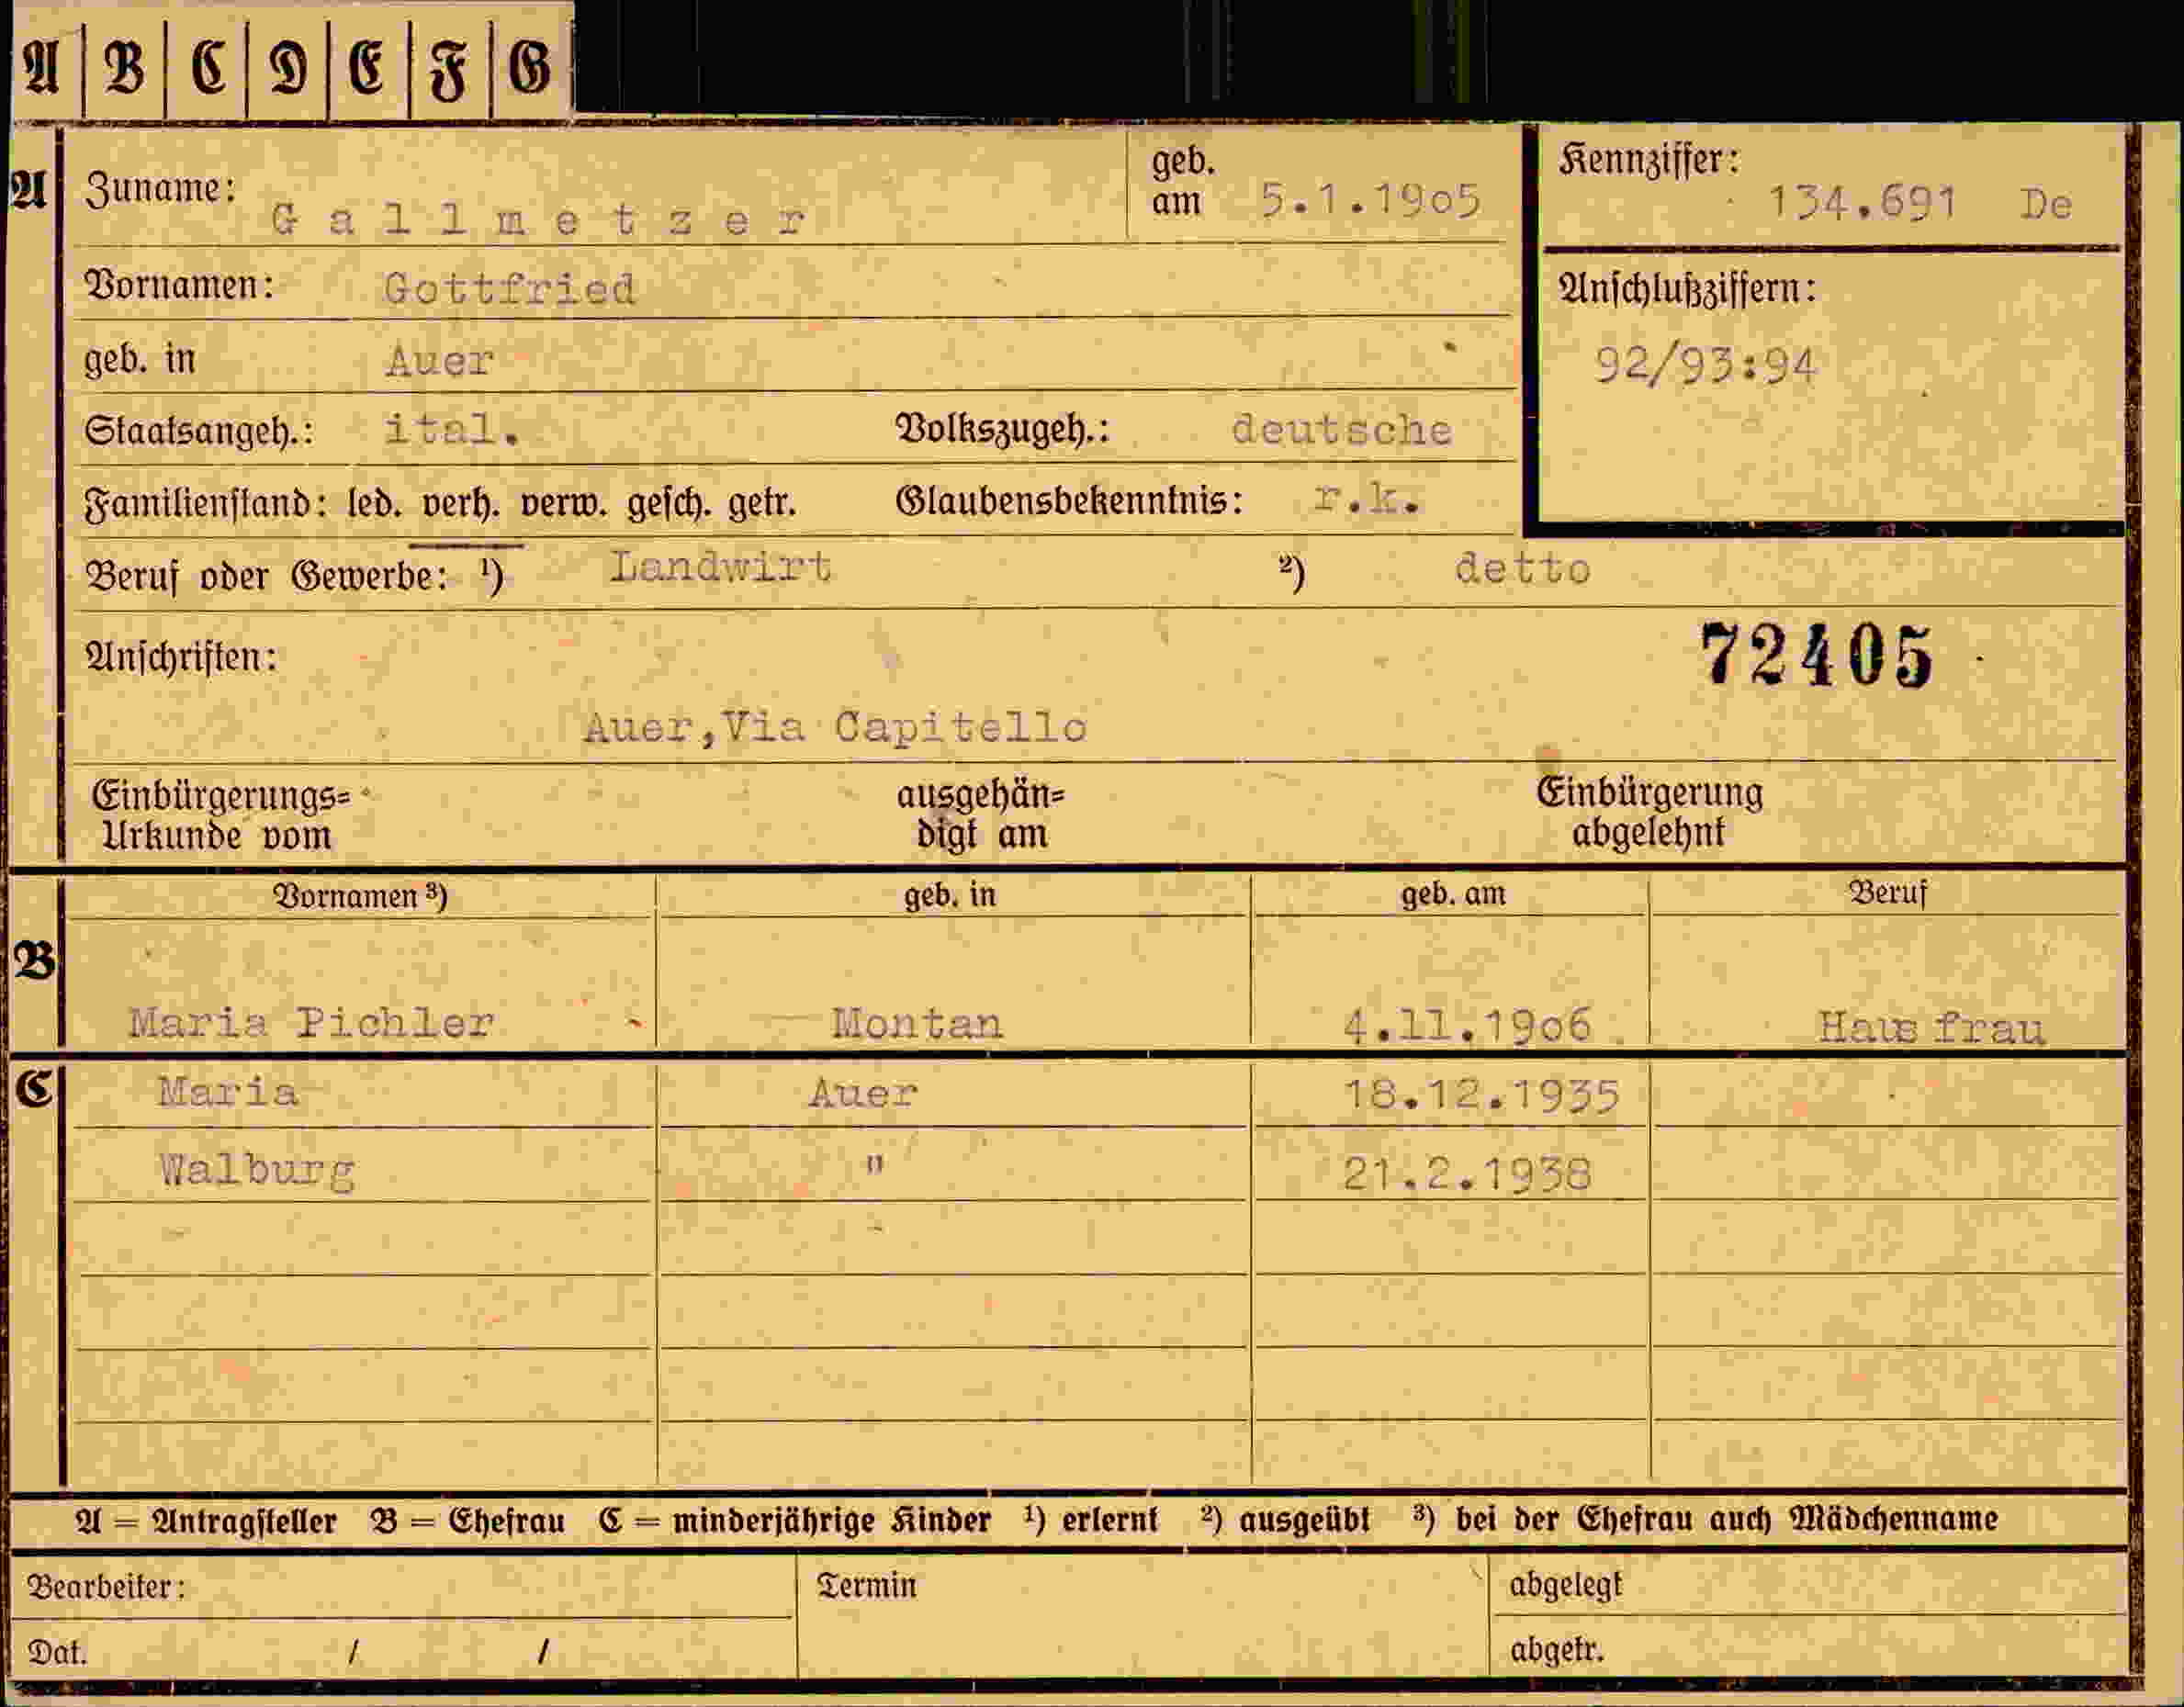 A B C D E F G
A Zuname: Gallmetzer geb. am 5.1.1905 Kennziffer: 134.691 De
Vornamen: Gottfried Anschlußziffern:
geb. in Auer 92/93:94
Staatsangeh.: ital. Volkszugeh.: deutsche
Familienstand: led. verh. verw. gesch. getr. Glaubensbekenntnis: r.k.
Beruf oder Gewerbe: ¹) Landwirt ²) detto
Anschriften: 72405
Auer,Via Capitello
Einbürgerungs= ausgehän= Einbürgerung
Urkunde vom digt am abgelehnt
B Vornamen ³) geb. in geb. am Beruf
Maria Pichler Montan 4.11.1906 Hausfrau
C Maria Auer 18.12.1935
Walburg " 21.2.1938
A = Antragsteller B = Ehefrau C = minderjährige Kinder ¹) erlernt ²) ausgeübt ³) bei der Ehefrau auch Mädchenname
Bearbeiter: Termin abgelegt
Dat. / / abgetr.